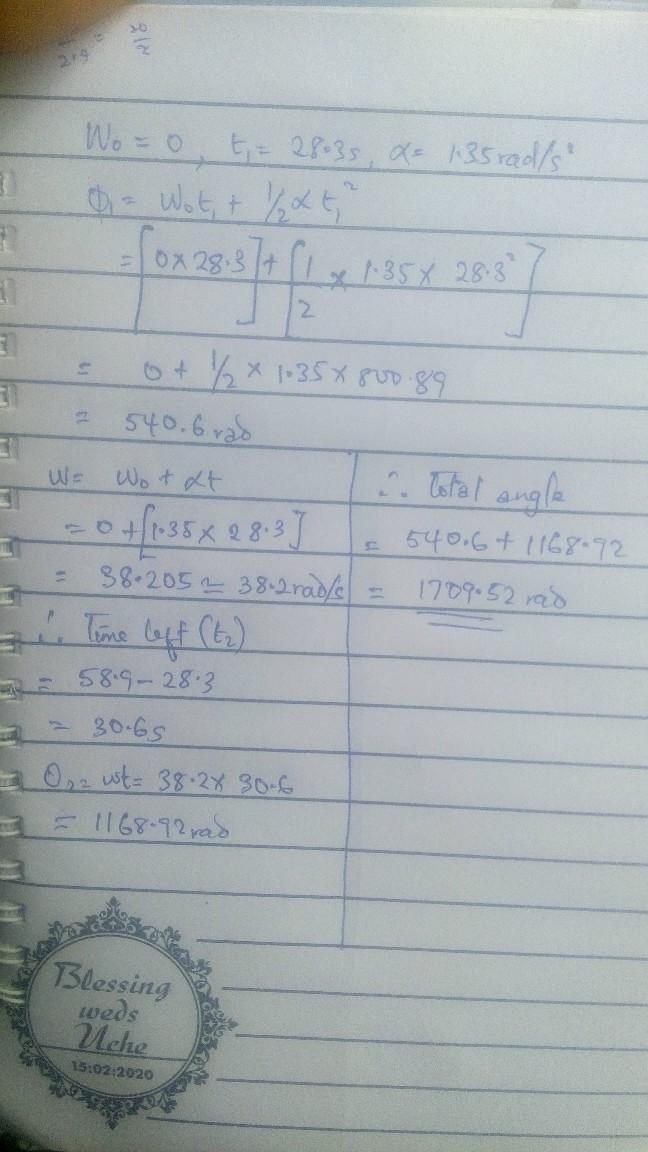 2.9 = 20/2
W₀ = 0, t₁ = 28.3s, α = 1.35rad/s²
Φ₁ = W₀t₁ + 1/2 αt₁²
= [0 × 28.3] + [1/2 × 1.35 × 28.3²]
= 0 + 1/2 × 1.35 × 800.89
= 540.6 rad
W = W₀ + αt
= 0 + [1.35 × 28.3]
= 38.205 ≃ 38.2rad/s
∴ Time left (t₂)
= 58.9 − 28.3
= 30.6s
Θ₂ = wt = 38.2 × 30.6
= 1168.92 rad
∴ Total angle
= 540.6 + 1168.92
= 1709.52 rad
Blessing
weds
Uche
15:02:2020